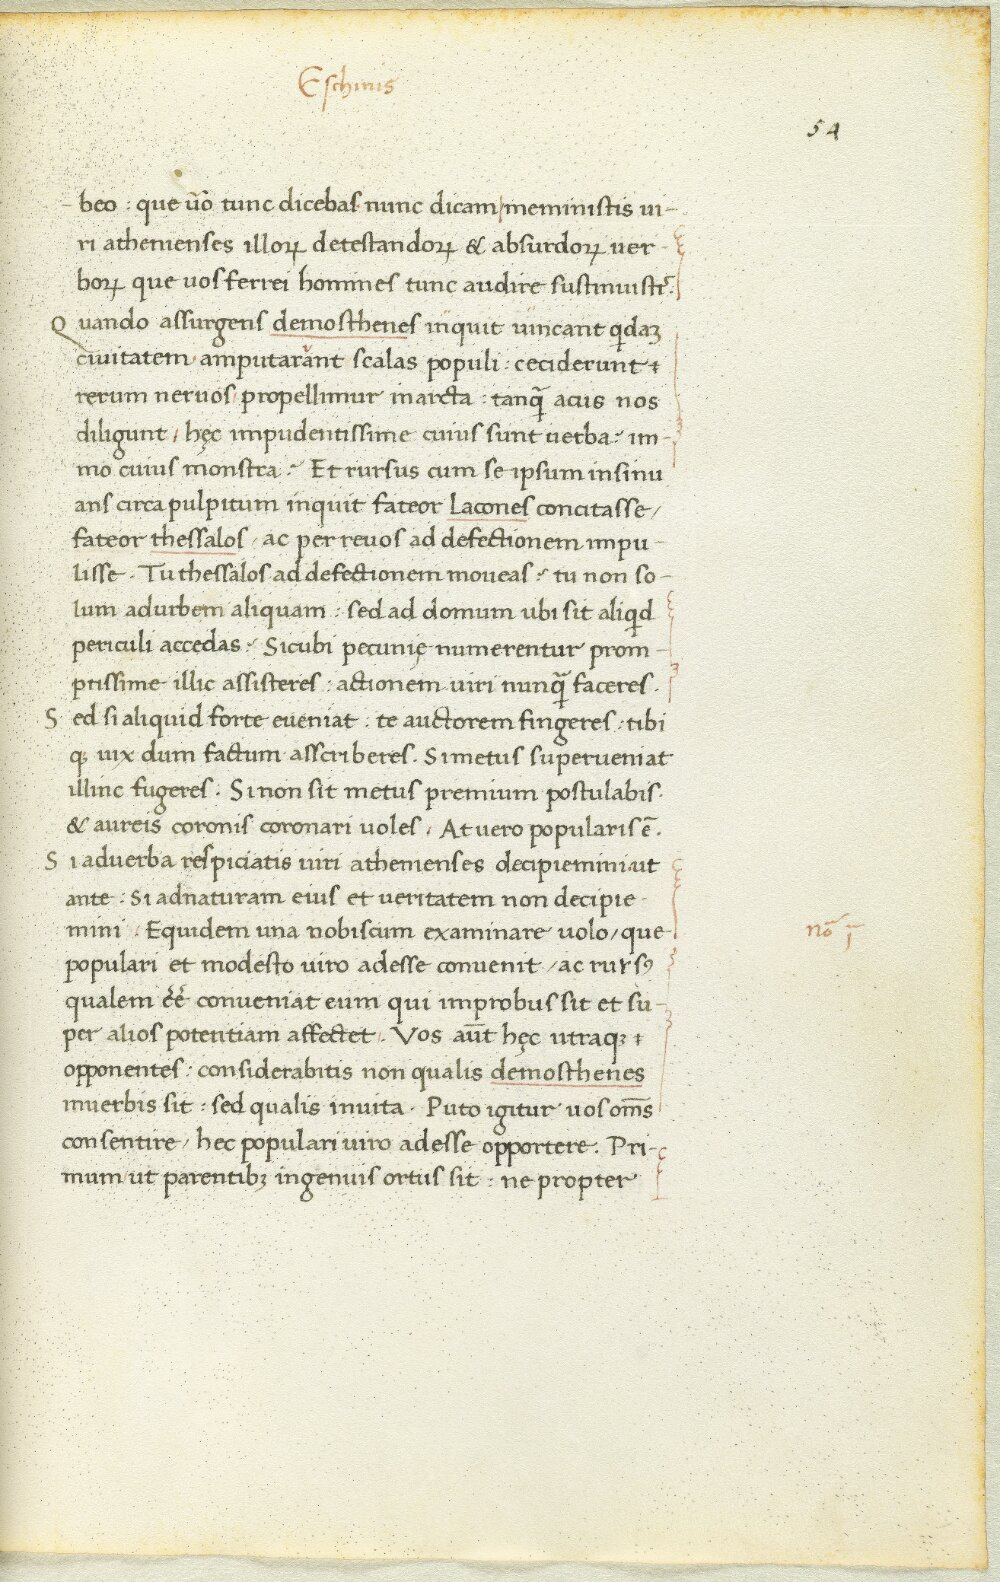 Eschinis
54
beo : que uõ tunc dicebas nunc dicam / meministis ui-
ri athenienses illoꝝ detestandoꝝ & absurdoꝝ uer-
boꝝ que uos ferrei homines tunc audire sustinuistꝭ.
Quando assurgens demosthenes inquit uincant qdaꝫ
ciuitatem amputarant scalas populi : ceciderunt
rerum neruos propellimur in arcta : tanꝗ̃ acus nos
diligunt / hęc impudentissime cuius sunt uerba? im-
mo cuius monstra? Et rursus cum se ipsum insinu
ans circa pulpitum inquit fateor Lacones concitasse /
fateor thessalos / ac per reuos ad defectionem impu-
lisse. Tu thessalos ad defectionem moueas? tu non so-
lum ad urbem aliquam : sed ad domum ubi sit aliqd
periculi accedas? Sicubi pecunię numerentur prom-
ptissime illic assisteres : actionem uiri nunꝗ̃ faceres.
Sed si aliquid forte eueniat : te auctorem fingeres : tibi
qꝫ uix dum factum asscriberes. Si metus superueniat
illinc fugeres. Si non sit metus premium postulabis.
& aureis coronis coronari uoles / At uero popularis ē.
Si ad uerba respiciatis uiri athenienses decipiemini ut
ante : Si ad naturam eius et ueritatem non decipie-
mini / Equidem una nobiscum examinare uolo / que
populari et modesto uiro adesse conuenit / ac rursꝰ
qualem ēē conueniat eum qui improbus sit et su-
per alios potentiam affectet. Vos aūt hęc utraqꝫ
opponentes : considerabitis non qualis demosthenes
in uerbis sit : sed qualis in uita. Puto igitur uos oms̄
consentire / hec populari uiro adesse opportere. Pri-
mum ut parentibꝫ ingenuis ortus sit : ne propter